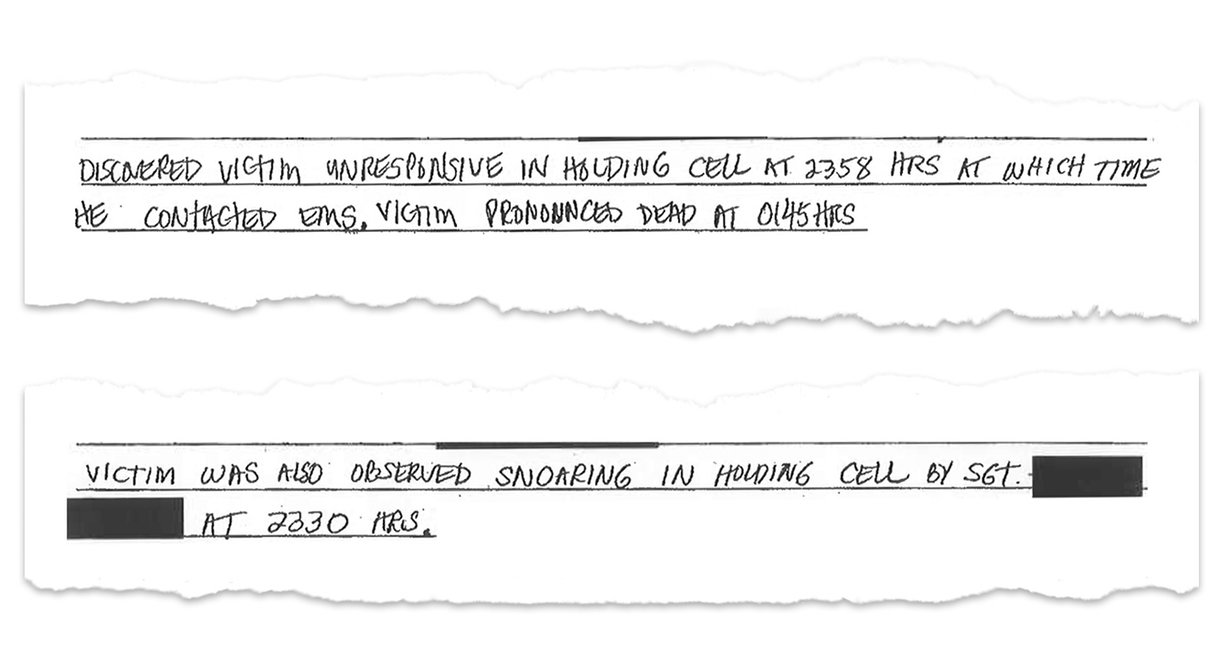 DISCOVERED VICTIM UNRESPONSIVE IN HOLDING CELL AT 2358 HRS AT WHICH TIME
HE CONTACTED EMS. VICTIM PRONONNCED DEAD AT 0145 HRS
VICTIM WAS ALSO OBSERVED SNOARING IN HOLDING CELL BY SGT.
AT 2330 HRS.